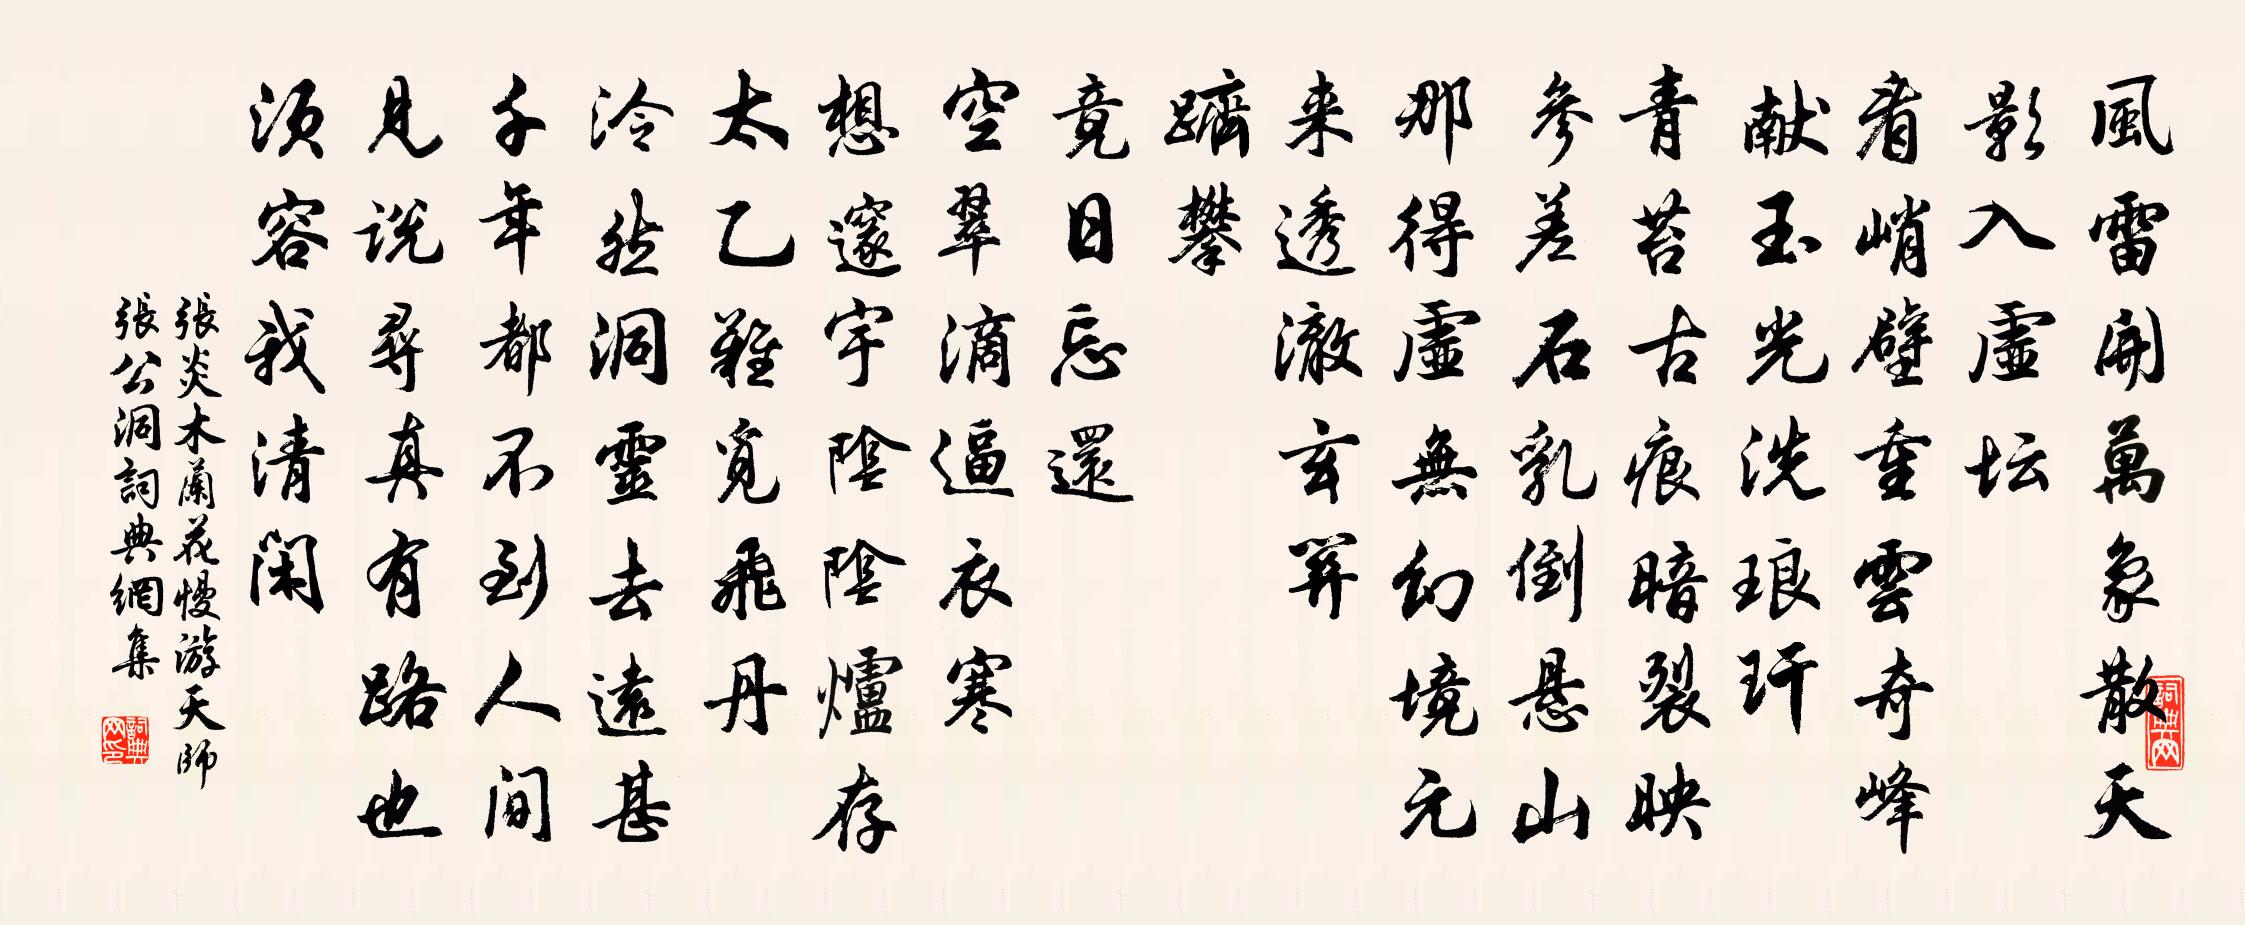 風雷開萬象散天
影入虛坛
看峭壁重雲奇峰
献玉光洗琅玕
青苔古痕暗裂映
參差石乳倒悬山
那得虛無幻境元
来透澈玄關
躋攀
竟日忘還
空翠滴逼衣寒
想邃宇陰陰爐存
太乙難覓飛丹
泠然洞靈去遠甚
千年都不到人间
見说尋真有路也
須容我清閑
張炎木蘭花慢游天師
張公洞詞典網集
詞典网
詞典网印